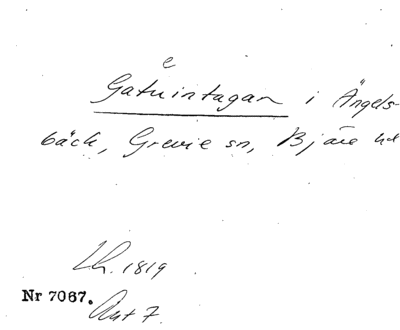 e
Gatuintagan i Ängels-
bäck, Grevie sn, Bjäre hd
Lh. 1819
Nr 7067.
Akt 7